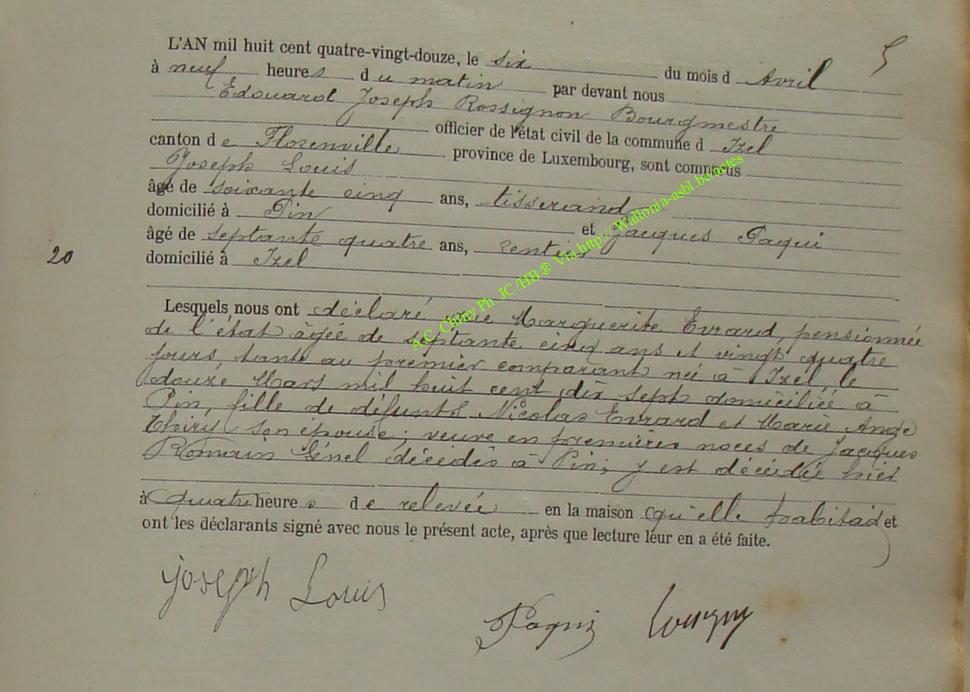 5
L'AN mil huit cent quatre-vingt-douze, le six du mois d Avril
à neuf heures du matin par devant nous
Edouard Joseph Rossignon Bourgmestre
officier de l'état civil de la commune d Izel
canton de Florenville province de Luxembourg, sont comparus
Joseph Louis
âgé de soixante cinq ans, tisserand
domicilié à Pin et Jacques Paqui
âgé de septante quatre ans, rentier
domicilié à Izel
20
Lesquels nous ont déclaré que Marguerite Evrard, pensionnée
de l'état âgée de septante cinq ans et vingt quatre
jours, tante au premier comparant née à Izel, le
douze Mars mil huit cent dix sept domiciliée à
Pin, fille de défunts Nicolas Evrard et Marie Ange
son épouse; veuve en premières noces de Jacques
Romain décédés à Pin; y est décédée hier
à quatre heures de relevée en la maison qu'elle habitait et
ont les déclarants signé avec nous le présent acte, après que lecture leur en a été faite.
Joseph Louis
Paqui
A.C. Chiny Ph. JC/HB® Via http://Wallonia-asbl.be/actes